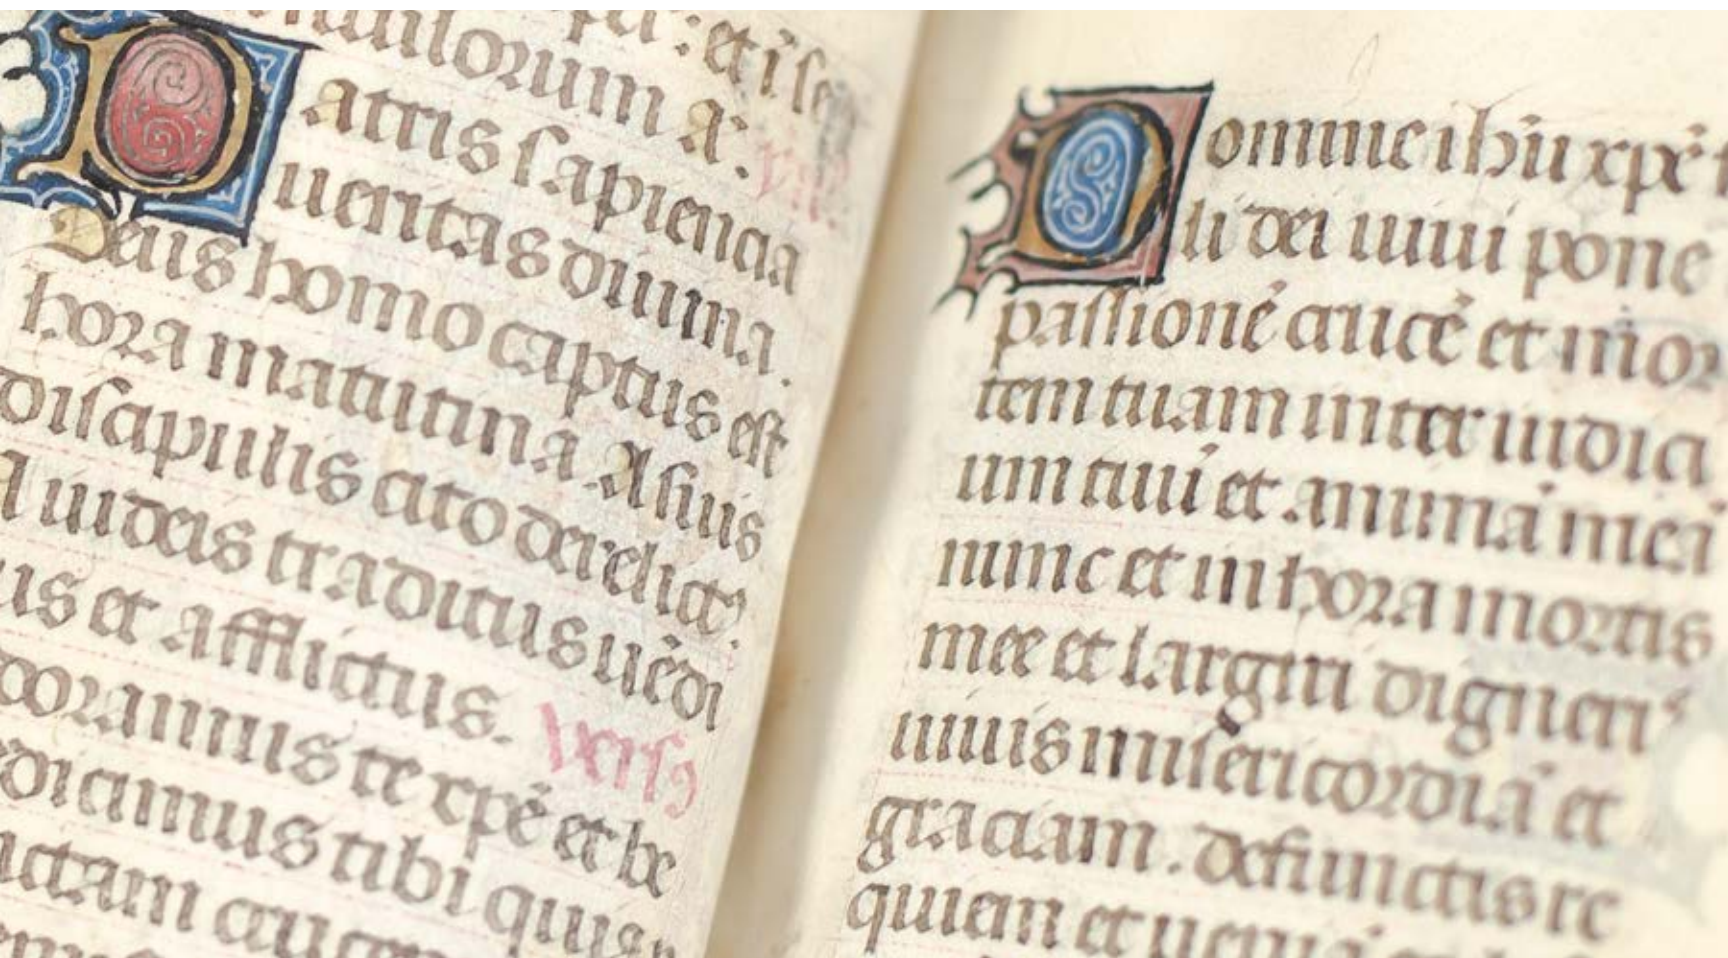 Patris sapiencia
ueritas diuina.
Deus homo captus est
hora matutina. A suis
discipulis cito derelict᾿
A iudeis traditus uēdi
us et afflictus.
versꝯ
doramus te xpē et be
edicimus tibi quia
Domine ihū xpē f
li dei uiui pone
passionē crucē et mor
tem tuam inter iudici
um tuū et animā meā
nunc et in hora mortis
mee et largiri digneri᾿
uiuis misericordiā et
graciam. defunctis re
quiem et ueniā